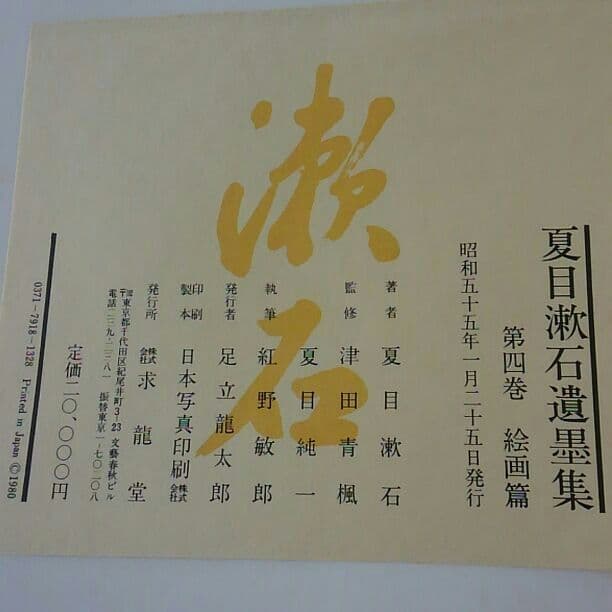 夏目漱石遺墨集
第四巻 絵画篇
昭和五十五年一月二十五日発行
著者 夏目漱石
監修 津田青楓
夏目純一
執筆 紅野敏郎
発行者 足立龍太郎
印刷 製本 日本写真印刷 株式会社
発行所 株式会社 求龍堂
〒102 東京都千代田区紀尾井町3-23 文藝春秋ビル
電話二三九・三三八一 振替東京一-七〇二〇八
定価二〇、〇〇〇円
0371-7918-1328 Printed in Japan ©1980
漱石